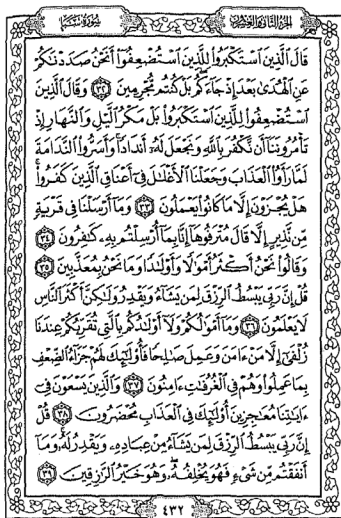 الجزء الثاني والعشرون
سورة سبأ
قَالَ ٱلَّذِينَ ٱسْتَكْبَرُوا۟ لِلَّذِينَ ٱسْتُضْعِفُوٓا۟ أَنَحْنُ صَدَدْنَـٰكُمْ
عَنِ ٱلْهُدَىٰ بَعْدَ إِذْ جَآءَكُم ۖ بَلْ كُنتُم مُّجْرِمِينَ ٣٢ وَقَالَ ٱلَّذِينَ
ٱسْتُضْعِفُوا۟ لِلَّذِينَ ٱسْتَكْبَرُوا۟ بَلْ مَكْرُ ٱلَّيْلِ وَٱلنَّهَارِ إِذْ
تَأْمُرُونَنَآ أَن نَّكْفُرَ بِٱللَّهِ وَنَجْعَلَ لَهُۥٓ أَندَادًا ۚ وَأَسَرُّوا۟ ٱلنَّدَامَةَ
لَمَّا رَأَوُا۟ ٱلْعَذَابَ وَجَعَلْنَا ٱلْأَغْلَـٰلَ فِىٓ أَعْنَاقِ ٱلَّذِينَ كَفَرُوا۟ ۚ
هَلْ يُجْزَوْنَ إِلَّا مَا كَانُوا۟ يَعْمَلُونَ ٣٣ وَمَآ أَرْسَلْنَا فِى قَرْيَةٍ
مِّن نَّذِيرٍ إِلَّا قَالَ مُتْرَفُوهَآ إِنَّا بِمَآ أُرْسِلْتُم بِهِۦ كَـٰفِرُونَ ٣٤
وَقَالُوا۟ نَحْنُ أَكْثَرُ أَمْوَٰلًا وَأَوْلَـٰدًا وَمَا نَحْنُ بِمُعَذَّبِينَ ٣٥
قُلْ إِنَّ رَبِّى يَبْسُطُ ٱلرِّزْقَ لِمَن يَشَآءُ وَيَقْدِرُ وَلَـٰكِنَّ أَكْثَرَ ٱلنَّاسِ
لَا يَعْلَمُونَ ٣٦ وَمَآ أَمْوَٰلُكُمْ وَلَآ أَوْلَـٰدُكُم بِٱلَّتِى تُقَرِّبُكُمْ عِندَنَا
زُلْفَىٰٓ إِلَّا مَنْ ءَامَنَ وَعَمِلَ صَـٰلِحًا فَأُو۟لَـٰٓئِكَ لَهُمْ جَزَآءُ ٱلضِّعْفِ
بِمَا عَمِلُوا۟ وَهُمْ فِى ٱلْغُرُفَـٰتِ ءَامِنُونَ ٣٧ وَٱلَّذِينَ يَسْعَوْنَ فِىٓ
ءَايَـٰتِنَا مُعَـٰجِزِينَ أُو۟لَـٰٓئِكَ فِى ٱلْعَذَابِ مُحْضَرُونَ ٣٨ قُلْ
إِنَّ رَبِّى يَبْسُطُ ٱلرِّزْقَ لِمَن يَشَآءُ مِنْ عِبَادِهِۦ وَيَقْدِرُ لَهُۥ ۚ وَمَآ
أَنفَقْتُم مِّن شَىْءٍ فَهُوَ يُخْلِفُهُۥ ۖ وَهُوَ خَيْرُ ٱلرَّٰزِقِينَ ٣٩
٤٣٢